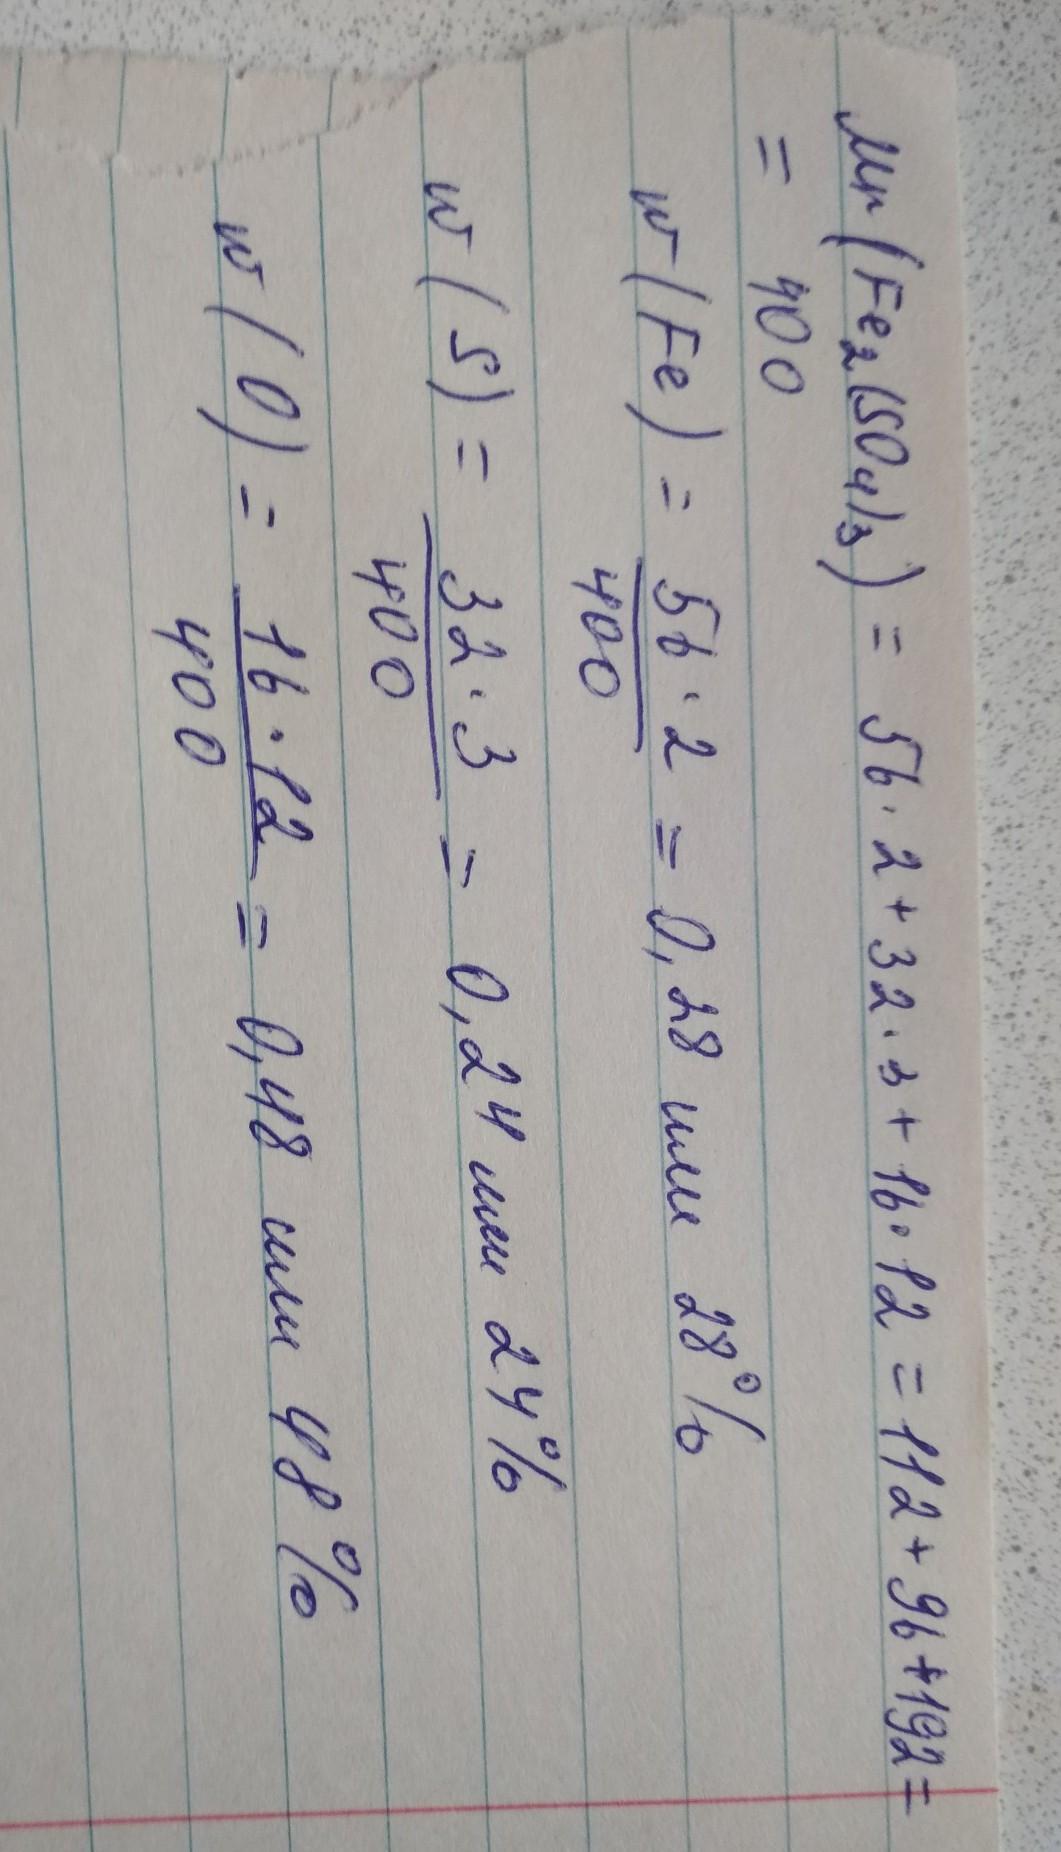 Mr(Fe₂(SO₄)₃) = 56·2+32·3+16·12=112+96+192=
= 400
w(Fe) = 56·2/400 = 0,28 или 28%
w(S) = 32·3/400 = 0,24 или 24%
w(O) = 16·12/400 = 0,48 или 48%